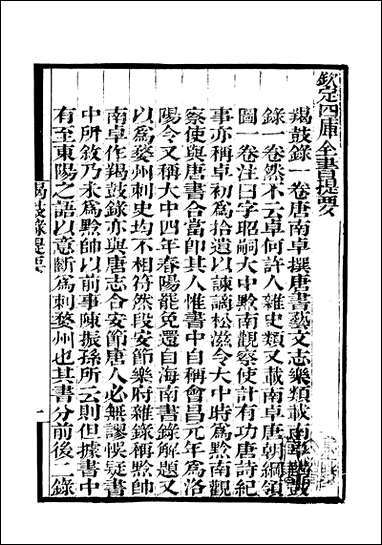 欽定四庫全書提要
羯鼓錄一卷唐南卓撰唐書藝文志樂類載南卓羯鼓
錄一卷然不云卓何許人雜史類又載南卓唐朝綱領
圖一卷注曰字昭嗣大中黔南觀察使計有功唐詩紀
事亦稱卓初爲拾遺以諫謫松滋令大中時爲黔南觀
察使與唐書合當卽其人惟書中自稱會昌元年爲洛
陽令又稱大中四年春陽罷免還自海南書錄解題又
以爲婺州刺史均不相符然段安節樂府雜錄稱黔帥
南卓作羯鼓錄亦與唐志合安節唐人必無謬悞疑書
中所敘乃未爲黔帥以前事陳振孫所云則但據書中
有至東陽之語以意斷爲刺婺州也其書分前後二錄
羯鼓錄提要
一